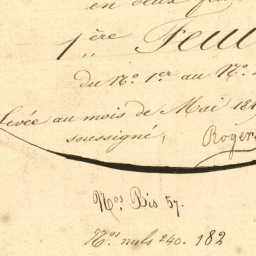 en deux
1ère Feu
du No. 1er au No.
Levée au mois de Mai 18
soussigné, Roger
Nos Bis 57.
Nos. nuls 240. 182